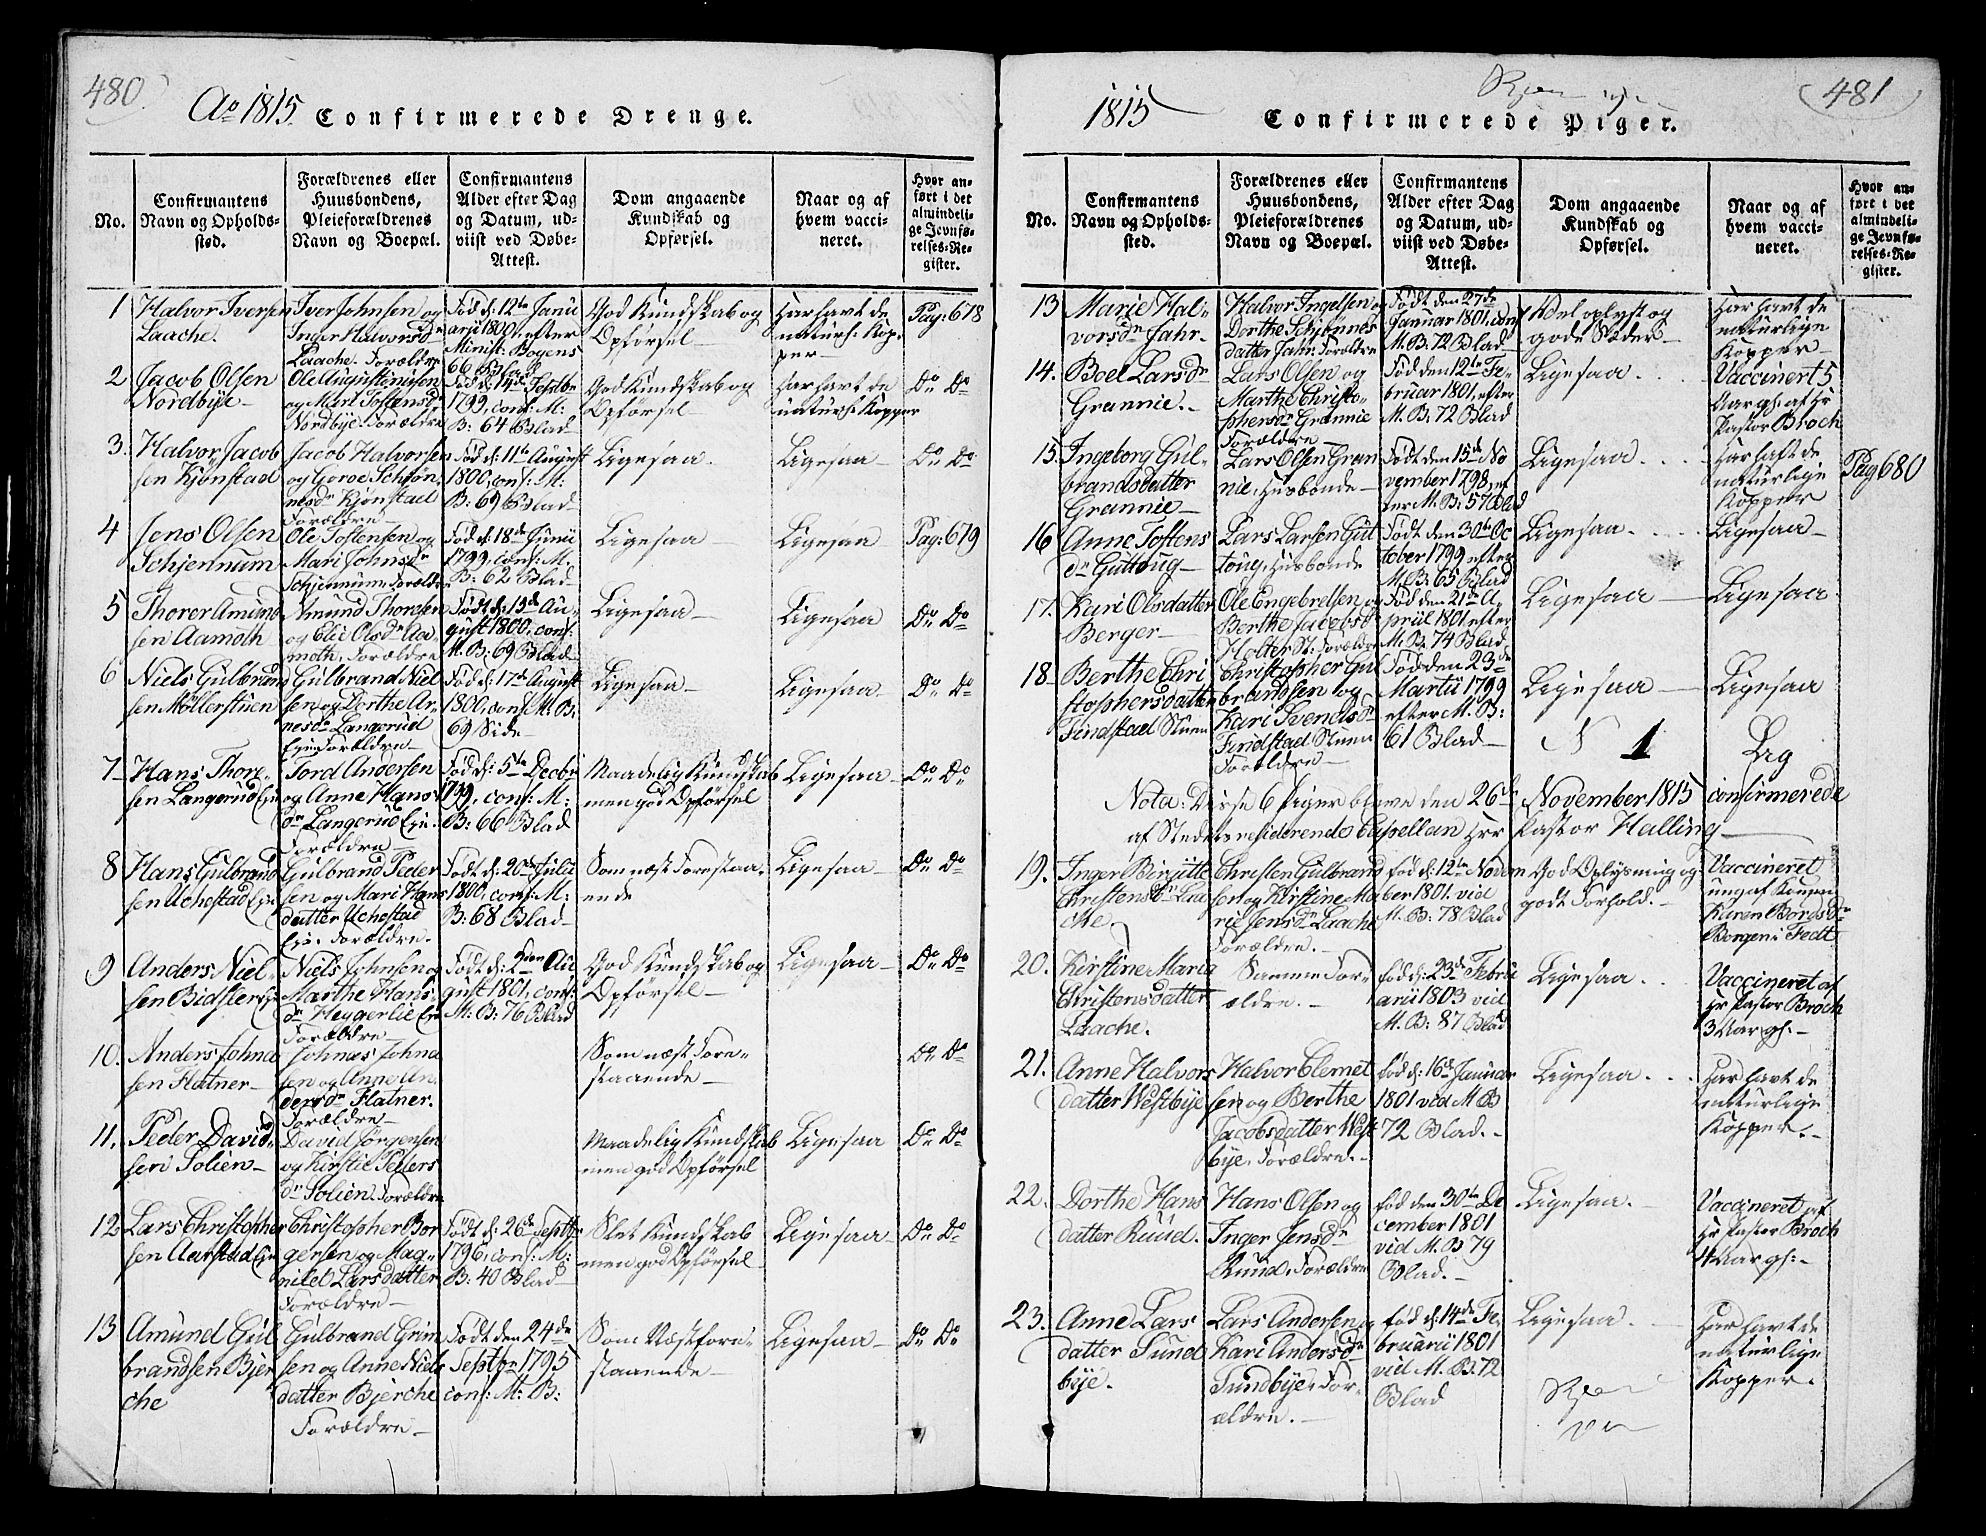 480.
Ao 1815. Confirmerede Drenge.
No.
Confirmantens
Navn og Opholds-
sted.
Forældrenes eller
Huusbondens,
Pleieforældrenes
Navn og Boepæl.
Confirmantens
Alder efter Dag
og Datum, ud-
viist ved Døbe-
Attest.
Dom angaaende
Kundskab og
Opførsel.
Naar og af
hvem vacci-
neret.
Hvor an-
ført i det
almindeli-
ge Jevnfø-
relses-Re-
gister.
1
Halvor Iversen
Laache.
Iver Johnsen og
Inger Halvorsdr
Laache. Forældre
Fød d: 12te Janu
arii 1800, efter
Minist: Bogens
66 Blad
God Kundskab og
Opførsel
Har havt de
naturl: Kop-
per
Pag: 678
2
Jacob Olsen
Nordbye
Ole Augustinuson
og Mari Toftensdr
Nordbye. Forældre
Fød d: 14de Septbr
1799, conf: M:
B: 64 Blad
God Kundskab og
Opførsel
Har havt de
naturl: Kopper
Do Do
3.
Halvor Jacob
sen Kjønstad
Jacob Halvorsen
og Goroe Schjøn
nesdr Kjønstad
Forældre
Fød d: 11te August
1800, conf: M:
B: 69 Blad
Ligesaa.
Ligesaa
Do Do
4
Jens Olsen
Schjennum
Ole Toftensen og
Mari Johnsdr
Schjennum. Forældre
Fød d: 18de Junii
1799, conf: M.
B: 62 Blad
Ligesaa
Ligesaa
Pag: 679
5
Thorer Amund
sen Aamoth
Amund Thorersen
og Elie Olsdr Aa-
moth. Forældre
Født d: 13de Au-
gust 1800, conf:
M. B: 69 Blad
Ligesaa
Ligesaa
Do Do
6
Niels Gulbrand
sen Møllerstuen
Gulbrand Niel
sen og Dorthe Ar-
nesdr Langerud
Eje Forældre
Fød d: 17de August
1800, conf: M: B:
69 Side
Ligesaa
Ligesaa
Do Do
7
Hans Thor-
sen Langerud Eje
Tord Andersen
og Anne Hans
dr Langerud Eje.
Forældre
Fød d: 5te Decbr
1799, conf: M:
B: 66 Blad
Maadelig Kundskab
men god Opførsel
Ligesaa
Do Do
8
Hans Gulbrand
sen Uchestad Eje
Gulbrand Peder
sen og Mari Hans
datter Uchestad
Eje. Forældre.
Født d: 20de Julii
1800, conf: M:
B: 68 Blad
Som næst Forestaa-
ende
Ligesaa
Do Do
9
Anders Niel-
sen Bidsler Eje
Niels Johnsen og
Marthe Hans
dr Heggerlie Eje
Forældre
Født d: 2den Au
gust 1801, conf:
M: B: 76 Blad
God Kundskab og
Opførsel
Ligesaa
Do Do
10.
Anders Johna
sen Flatner
Johnas Johna
sen og Anne An
dersdr Flatner.
Forældre
Som næst Fore-
staaende
Do Do
11.
Peder David-
sen Solien
David Jørgensen
og Kirstie Peders
dr Solien. Forældre
Maadelig Kundskab
men god Opførsel
Ligesaa
Do Do
12
Lars Christopher
sen Aarstad Eje
Christopher Bor
gersen og Mag-
nild Larsdatter
Forældre
Født d: 26de Septbr
1796, conf: M:
B: 40 Blad
Slet Kundskab
men god Opførsel
Ligesaa
Do Do
13
Amund Gul
brandsen Bjer
che
Gulbrand Grim
sen og Anne Niels
datter Bjerche
Forældre
Født den 24de
Septbr 1795
conf: M: B:
Som Næstfore-
staaende
Ligesaa
Do Do
1815
Confirmerede Piger.
481
No.
Confirmantens
Navn og Opholds-
sted.
Forældrenes eller
Huusbondens,
Pleieforældrenes
Navn og Boepæl.
Confirmantens
Alder efter Dag
og Datum, ud-
viist ved Døbe-
Attest.
Dom angaaende
Kundskab og
Opførsel.
Naar og af
hvem vacci-
neret.
Hvor an-
ført i det
almindeli-
ge Jevnfø-
relses-Re-
gister.
13
Marie Hal-
vorsdr Jahr.
Halvor Ingelsen og
Dorthe Schjønnes
datter Jahr. Forældre
Født den 27de
Januar 1801, conf
M. B. 72 Blad
Vel oplyst og
gode Sæder
Har havt de
naturlige
Kopper
14.
Boel Larsdr
Grannie.
Lars Olsen og
Marthe Christo-
phersdr Grannie
Forældre
Fød den 12te Fe-
bruar 1801, efter
M. B: 72 Blad
Ligesaa
Vaccinert 5
Aar gl: af Hr
Pastor Broch
15.
Ingeborg Gul-
brandsdatter
Grannie
Lars Olsen Gran
nie, Husbonde
Født den 15de No
vember 1798, ef
ter M. B: 57 Blad
Ligesaa
Har haft de
naturlige
Kopper
Pag 680
16
Anne Toftens
dr Guttoug
Lars Larsen Gut
toug, Husbonde
Født den 30te Oc
tober 1799 efter
M. B. 65 Blad
Ligesaa
Ligesaa
17.
Kari Olsdatter
Berger
Ole Engebretsen og
Berthe Jacobsdr
Holter St: Forældre
Fød den 21de A-
priil 1801 efter
M. B. 74 Blad
Ligesaa
Ligesaa
18
Berthe Chri
stophersdatter
Findstad Stuen
Christopher Gul
brandsen og
Kari Svendsdr
Findstad Stuen
Forældre
Fød den 23de
Martii 1799
efter M. B:
61 Blad
Ligesaa
Ligesaa
N 1
Lig
Nota: Disse 6 Piger bleve den 26de November 1815 confirmerede
af Stedets residerende Capellan Herr Pastor Halling
19.
Inger Birgitte
Christensdr Laa
che.
Christen Gulbrand
sen og Kirstine Ma
rie Jensdr Laache
Forældre.
fød d: 12te Novem
ber 1801. vid
M. B: 78 Blad
God Oplysning og
godt Forhold.
Vaccineret
ung af Konen
Karen Bordsdr
Borgen i Fedt
20.
Kirstine Maria
Christensdatter
Laache.
Samme For-
ældre.
fød d: 23de Febru
arii 1803 vid
M. B: 87 Blad
Ligesaa
Vaccineret af
Hr Pastor Broch
3 Aar gl:
21.
Anne Halvors
datter Westbye
Halvor Clemet
sen og Berthe
Jacobsdatter West
bye. Forældre.
fød d: 16de Januar
1801 vid M. B
72 Blad.
Ligesaa
Har havt de
naturlige
Kopper.
22.
Dorthe Hans
datter Ruud.
Hans Olsen og
Inger Jensdr
Ruud, Forældre
fød den 30te De
cember 1801
vid M. B 79
Blad.
Ligesaa.
Vaccineret af
Hr Pastor Broch
4 Aar gl:
23.
Anne Lars
datter Sund
bye.
Lars Andersen og
Kari Andersdr
Sundbye, For-
ældre.
fød d: 14de Fe-
bruarii 1801
vid M. B. 72
Blad
Ligesaa.
Har havt de
naturlige
Kopper.